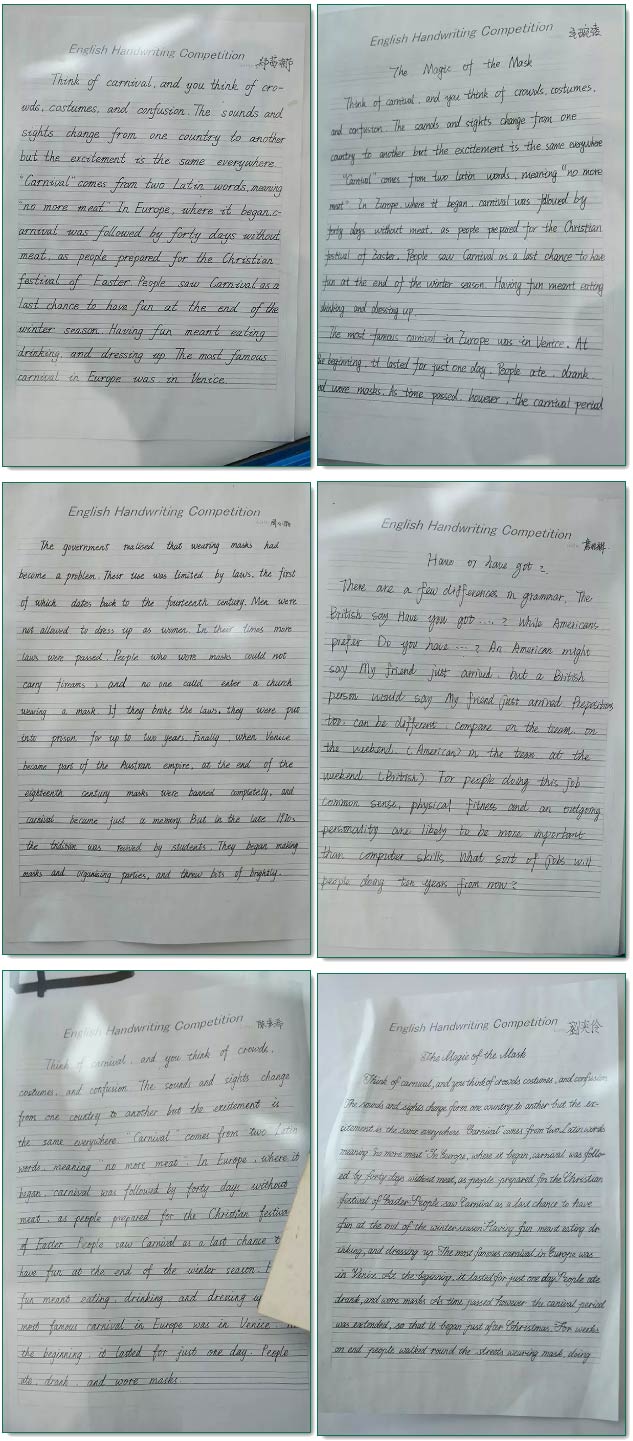 English Handwriting Competition
Think of carnival, and you think of cro-
wds, costumes, and confusion. The sounds and
sights change from one country to another
but the excitement is the same everywhere.
"Carnival" comes from two Latin words, meaning
"no more meat" In Europe, where it began, c-
arnival was followed by forty days without
meat, as people prepared for the Christian
festival of Easter. People saw Carnival as a
last chance to have fun at the end of the
winter season. Having fun meant eating
drinking, and dressing up The most famous
carnival in Europe was in Venice.
English Handwriting Competition
The Magic of the Mask
Think of carnival, and you think of crowds, costumes,
and confusion. The sounds and sights change from one
country to another but the excitement is the same everywhere
"Carnival" comes from two Latin words, meaning "no more
meat" In Europe, where it began, carnival was followed by
forty days without meat, as people prepared for the Christian
festival of Easter. People saw Carnival as a last chance to have
fun at the end of the winter season. Having fun meant eating
drinking and dressing up.
The most famous carnival in Europe was in Venice. At
the beginning, it lasted for just one day. People ate, drank
and wore masks. As time passed, however, the carnival period
English Handwriting Competition
The government realised that wearing masks had
become a problem. Their use was limited by laws, the first
of which dates back to the fourteenth century. Men were
not allowed to dress up as women. In their times more
laws were passed. People who wore masks could not
carry firearms, and no one could enter a church
wearing a mask. If they broke the laws, they were put
into prison for up to two years. Finally, when Venice
became part of the Austrian empire, at the end of the
eighteenth century masks were banned completely, and
carnival became just a memory. But in the late 1970s
the tradition was revived by students. They began making
masks and organising parties, and threw bits of brightly.
English Handwriting Competition
Have or have got?
There are a few differences in grammar, The
British say Have you got ....? While Americans
prefer Do you have ....? An American might
say My friend just arrived, but a British
person would say My friend just arrived Prepositions
too, can be different: compare on the team, on
the weekend. (American) in the team at the
weekend. (British.) For people doing this job
common sense, physical fitness and an outgoing
personality are likely to be more important
than computer skills, What sort of jobs will
people doing ten years from now?
English Handwriting Competition
Think of carnival, and you think of crowds,
costumes, and confusion. The sounds and sights change
from one country to another but the excitement is
the same everywhere. "Carnival" comes from two Latin
words, meaning "no more meat". In Europe, where it
began, carnival was followed by forty days without
meat, as people prepared for the Christian festival
of Easter People saw Carnival as a last chance
have fun at the end of the winter season.
fun meant eating, drinking, and dressing up
most famous carnival in Europe was in Venice.
the beginning, it lasted for just one day. People
ate, drank, and wore masks.
English Handwriting Competition
The Magic of the Mask
Think of carnival, and you think of crowds costumes, and confusion
The sounds and sights change form one country to anther but the ex-
citement is the same everywhere "Carnival" comes from two Latin words
meaning "no more meat" In Europe, where it began, carnival was follow-
ed by forty days without meat, as people prepared for the Christian
festival of Easter. People saw Carnival as a last chance to have
fun at the end of the winter season. Having fun meant eating dr
inking, and dressing up. The most famous carnival in Europe was
in Venice. At the beginning, it lasted for just one day. People ate
drank, and wore masks As time passed however the carnival period
was extended, so that it began just after Christmas. For weeks
on end people walked round the streets wearing mask, doing